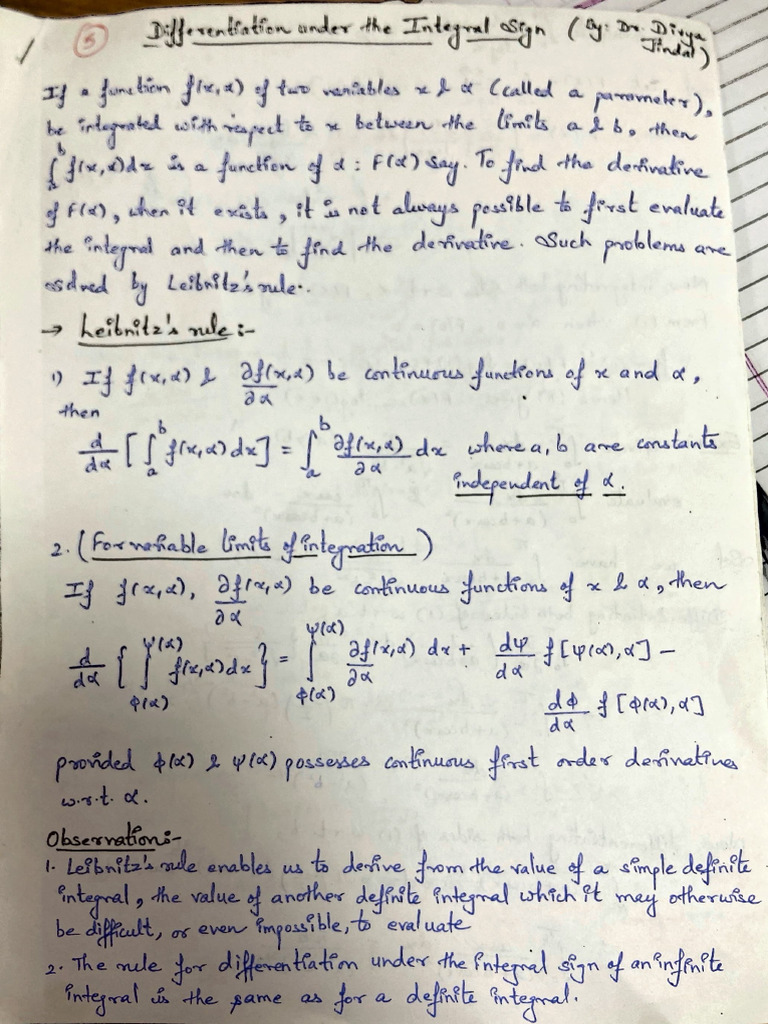 5 Differentiation under the Integral Sign (By: Dr. Divya Jindal)
If a function f(x,α) of two variables x & α (called a parameter),
be integrated with respect to x between the limits a & b, then
∫_a^b f(x,α)dx is a function of α : F(α) say. To find the derivative
of F(α), when it exists, it is not always possible to first evaluate
the integral and then to find the derivative. Such problems are
solved by Leibnitz's rule.
→ Leibnitz's rule :-
1) If f(x,α) & ∂f(x,α)/∂α be continuous functions of x and α,
then
d/dα [∫_a^b f(x,α)dx] = ∫_a^b ∂f(x,α)/∂α dx where a, b are constants
independent of α.
2. (For variable limits of integration)
If f(x,α), ∂f(x,α)/∂α be continuous functions of x & α, then
d/dα {∫_ϕ(α)^ψ(α) f(x,α)dx} = ∫_ϕ(α)^ψ(α) ∂f(x,α)/∂α dx + dψ/dα f[ψ(α),α] −
dϕ/dα f[ϕ(α),α]
provided ϕ(α) & ψ(α) possesses continuous first order derivatives
w.r.t. α.
Observation:-
1. Leibnitz's rule enables us to derive from the value of a simple definite
integral, the value of another definite integral which it may otherwise
be difficult, or even impossible, to evaluate
2. The rule for differentiation under the integral sign of an infinite
integral is the same as for a definite integral.